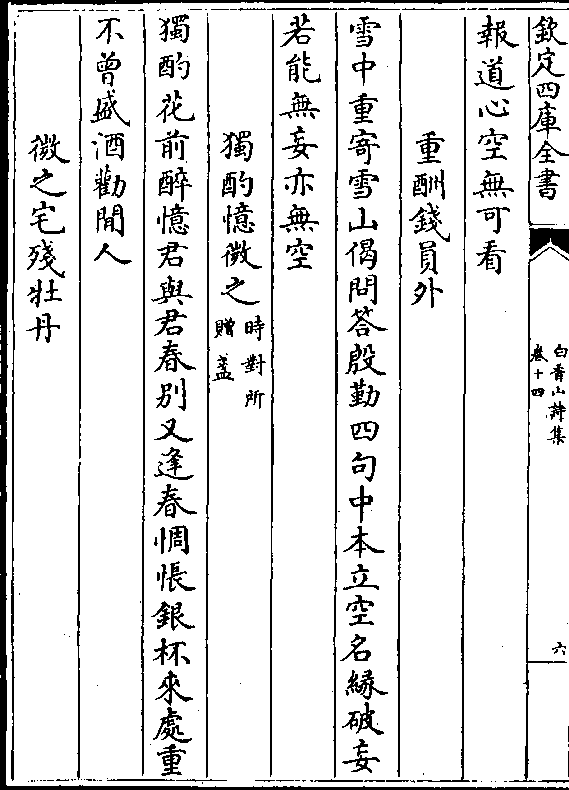 欽定四庫全書
白香山詩集
卷十四
六
報道心空無可看
重酬錢員外
雪中重寄雪山偈問答殷勤四句中本立空名緣破妄
若能無妄亦無空
獨酌憶微之時對所贈盞
獨酌花前醉憶君與君春別又逢春惆悵銀杯來處重
不曾盛酒勸閒人
微之宅殘牡丹